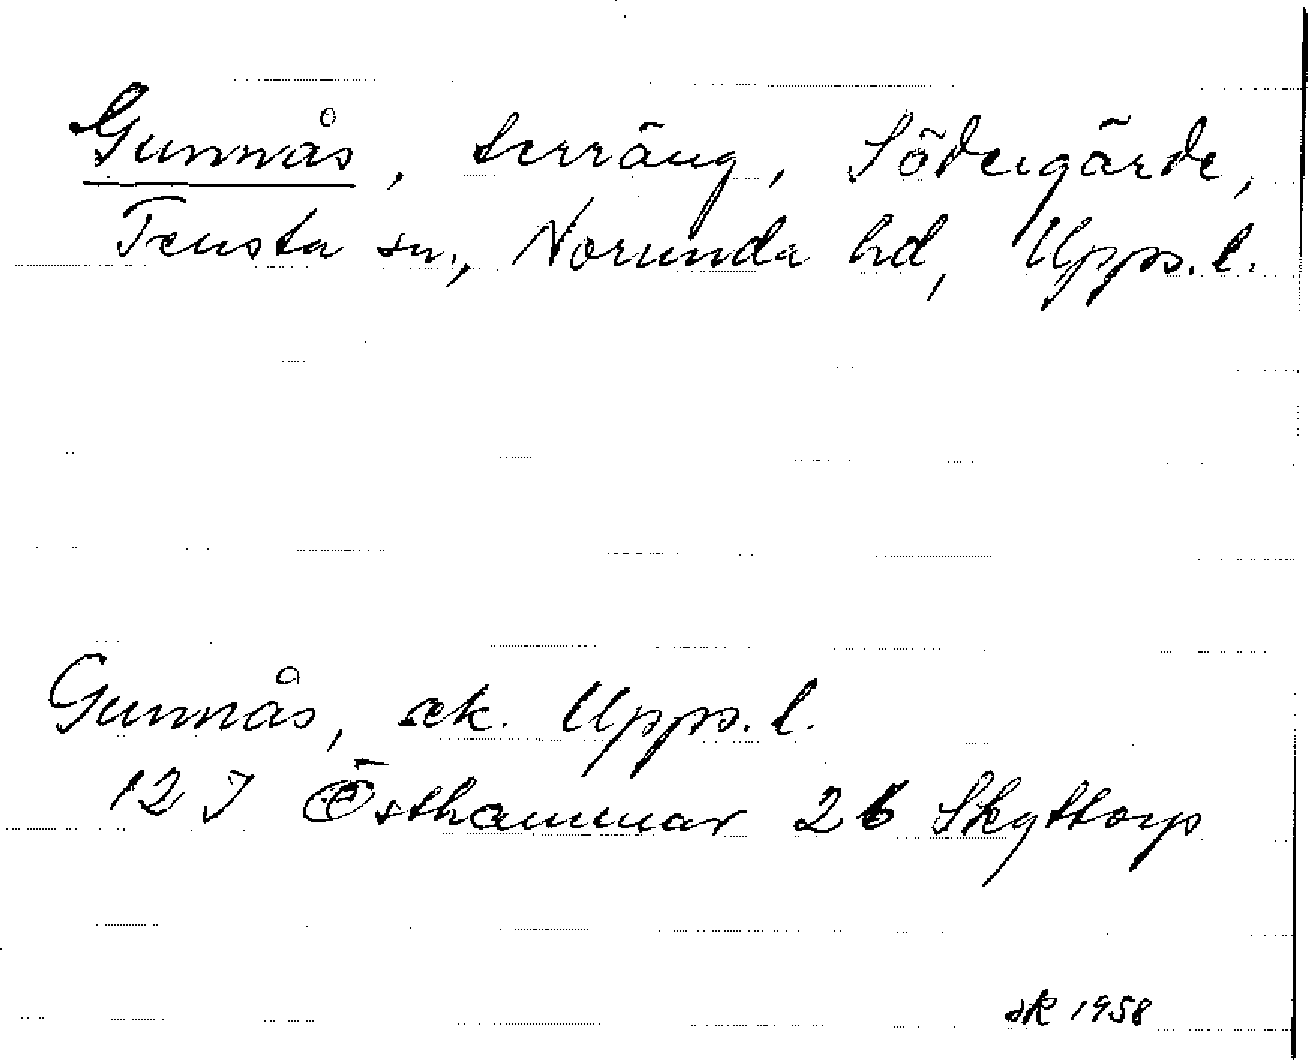 Gunnås, terräng, Södergärde,
Tensta sn., Norunda hd, Upps. l.
Gunnås, ek. Upps. l.
12 I Östhammar 2b Skyttorp
ek 1958